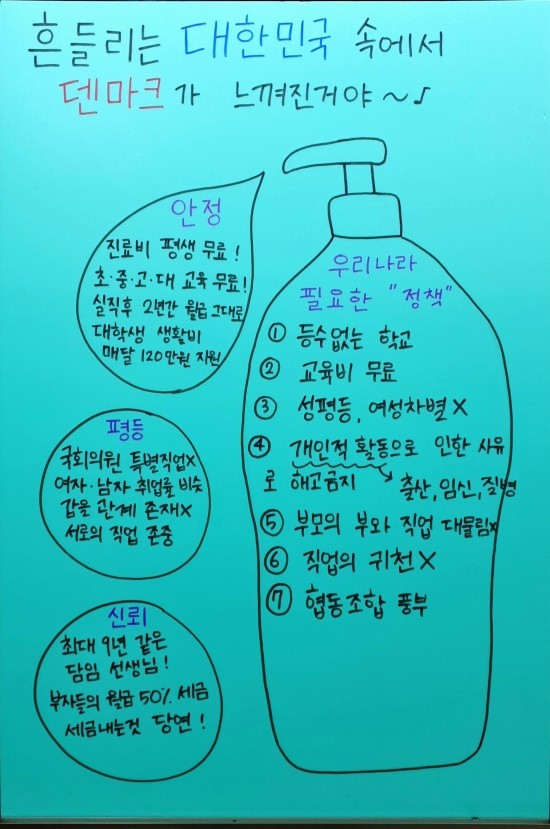 흔들리는 대한민국 속에서
덴마크가 느껴진거야~♪
안정
진료비 평생 무료!
초·중·고·대 교육 무료!
실직후 2년간 월급 그대로
대학생 생활비
매달 120만원 지원
평등
국회의원 특별직업X
여자·남자 취업률 비슷
갑을 관계 존재X
서로의 직업 존중
신뢰
최대 9년 같은
담임 선생님!
부자들의 월급 50% 세금
세금내는것 당연!
우리나라
필요한 "정책"
① 등수없는 학교
② 교육비 무료
③ 성평등, 여성차별X
④ 개인적 활동으로 인한 사유
로 해고금지 → 출산, 임신, 질병
⑤ 부모의 부와 직업 대물림X
⑥ 직업의 귀천X
⑦ 협동조합 풍부